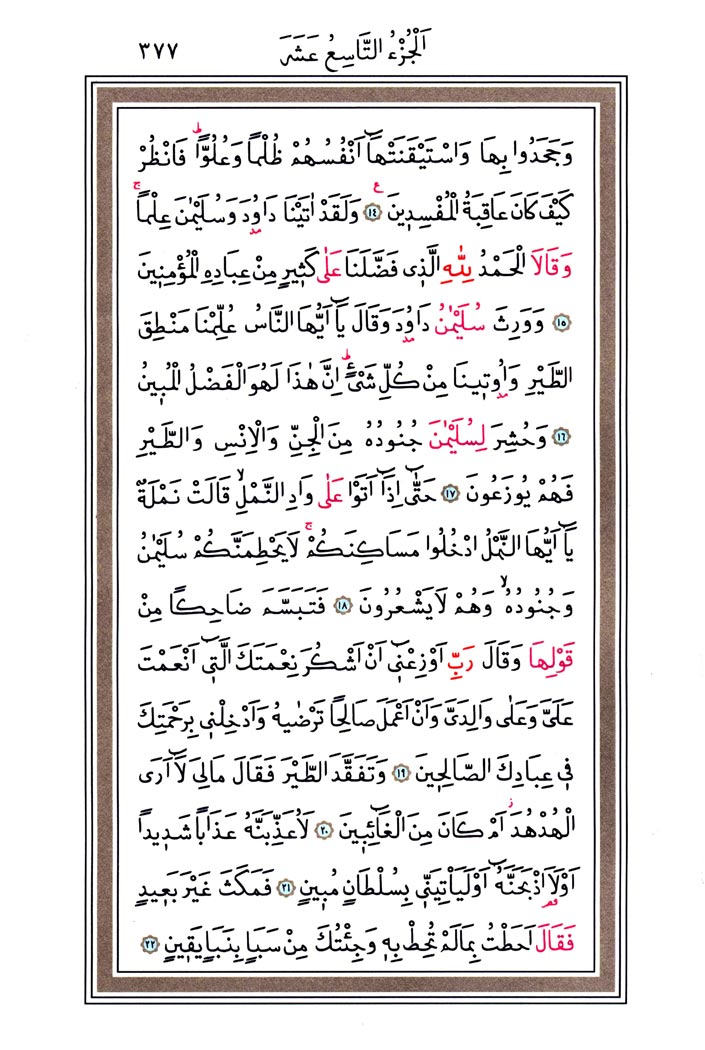 اَلْجُزْءُ التَّاسِعُ عَشَرَ ٣٧٧
وَجَحَدُوا بِهَا وَاسْتَيْقَنَتْهَٓا اَنْفُسُهُمْ ظُلْماً وَعُلُواًّۜ فَانْظُرْ
كَيْفَ كَانَ عَاقِبَةُ الْمُفْسِد۪ينَ۟ ﴿١٤﴾ وَلَقَدْ اٰتَيْنَا دَاوُ۫دَ وَسُلَيْمٰنَ عِلْماًۚ
وَقَالَا الْحَمْدُ لِلّٰهِ الَّذ۪ي فَضَّلَنَا عَلٰى كَث۪يرٍ مِنْ عِبَادِهِ الْمُؤْمِن۪ينَ
﴿١٥﴾ وَوَرِثَ سُلَيْمٰنُ دَاوُ۫دَ وَقَالَ يَٓا اَيُّهَا النَّاسُ عُلِّمْنَا مَنْطِقَ
الطَّيْرِ وَاُو۫ت۪ينَا مِنْ كُلِّ شَيْءٍۜ اِنَّ هٰذَا لَهُوَ الْفَضْلُ الْمُب۪ينُ
﴿١٦﴾ وَحُشِرَ لِسُلَيْمٰنَ جُنُودُهُ مِنَ الْجِنِّ وَالْاِنْسِ وَالطَّيْرِ
فَهُمْ يُوزَعُونَ ﴿١٧﴾ حَتّٰٓى اِذَٓا اَتَوْا عَلٰى وَادِ النَّمْلِۙ قَالَتْ نَمْلَةٌ
يَٓا اَيُّهَا النَّمْلُ ادْخُلُوا مَسَاكِنَكُمْۚ لَا يَحْطِمَنَّكُمْ سُلَيْمٰنُ
وَجُنُودُهُۙ وَهُمْ لَا يَشْعُرُونَ ﴿١٨﴾ فَتَبَسَّمَ ضَاحِكاً مِنْ
قَوْلِهَا وَقَالَ رَبِّ اَوْزِعْن۪ٓي اَنْ اَشْكُرَ نِعْمَتَكَ الَّت۪ٓي اَنْعَمْتَ
عَلَيَّ وَعَلٰى وَالِدَيَّ وَاَنْ اَعْمَلَ صَالِحاً تَرْضٰيهُ وَاَدْخِلْن۪ي بِرَحْمَتِكَ
ف۪ي عِبَادِكَ الصَّالِح۪ينَ ﴿١٩﴾ وَتَفَقَّدَ الطَّيْرَ فَقَالَ مَا لِيَ لَٓا اَرَى
الْهُدْهُدَۘ اَمْ كَانَ مِنَ الْغَٓائِب۪ينَ ﴿٢٠﴾ لَاُعَذِّبَنَّهُ عَذَاباً شَد۪يداً
اَوْ لَا۬اَذْبَحَنَّهُٓ اَوْ لَيَأْتِيَنّ۪ي بِسُلْطَانٍ مُب۪ينٍ ﴿٢١﴾ فَمَكَثَ غَيْرَ بَع۪يدٍ
فَقَالَ اَحَطْتُ بِمَا لَمْ تُحِطْ بِه۪ وَجِئْتُكَ مِنْ سَبَأٍ بِنَبَأٍ يَق۪ينٍ ﴿٢٢﴾